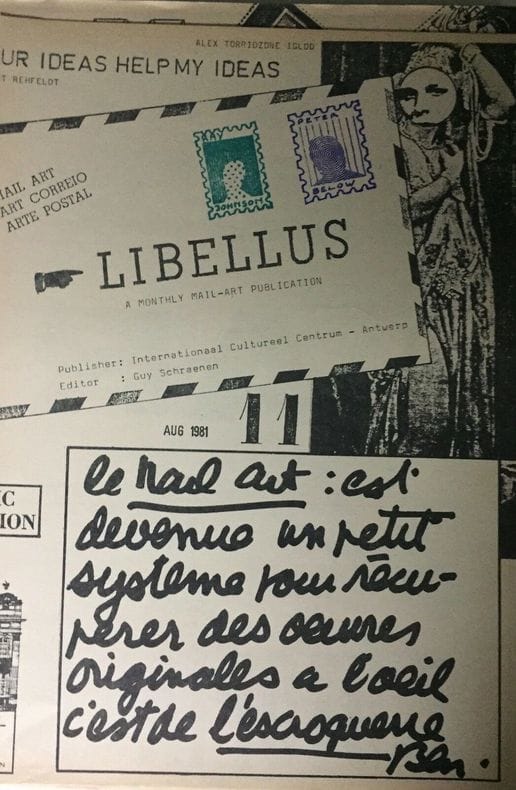 ALEX TORRIDZONE IGLOO
UR IDEAS HELP MY IDEAS
T REHFELDT
MAIL ART
ART CORREIO
ARTE POSTAL
RAY
JOHNSON
PETER
BELOW
LIBELLUS
A MONTHLY MAIL-ART PUBLICATION
Publisher: Internationaal Cultureel Centrum - Antwerp
Editor : Guy Schraenen
AUG 1981
11
IC
ION
le Mail art : est
devenue un petit
système pour récu-
pérer des oeuvres
originales a l'oeil
c'est de l'éscroquerie
Ben.